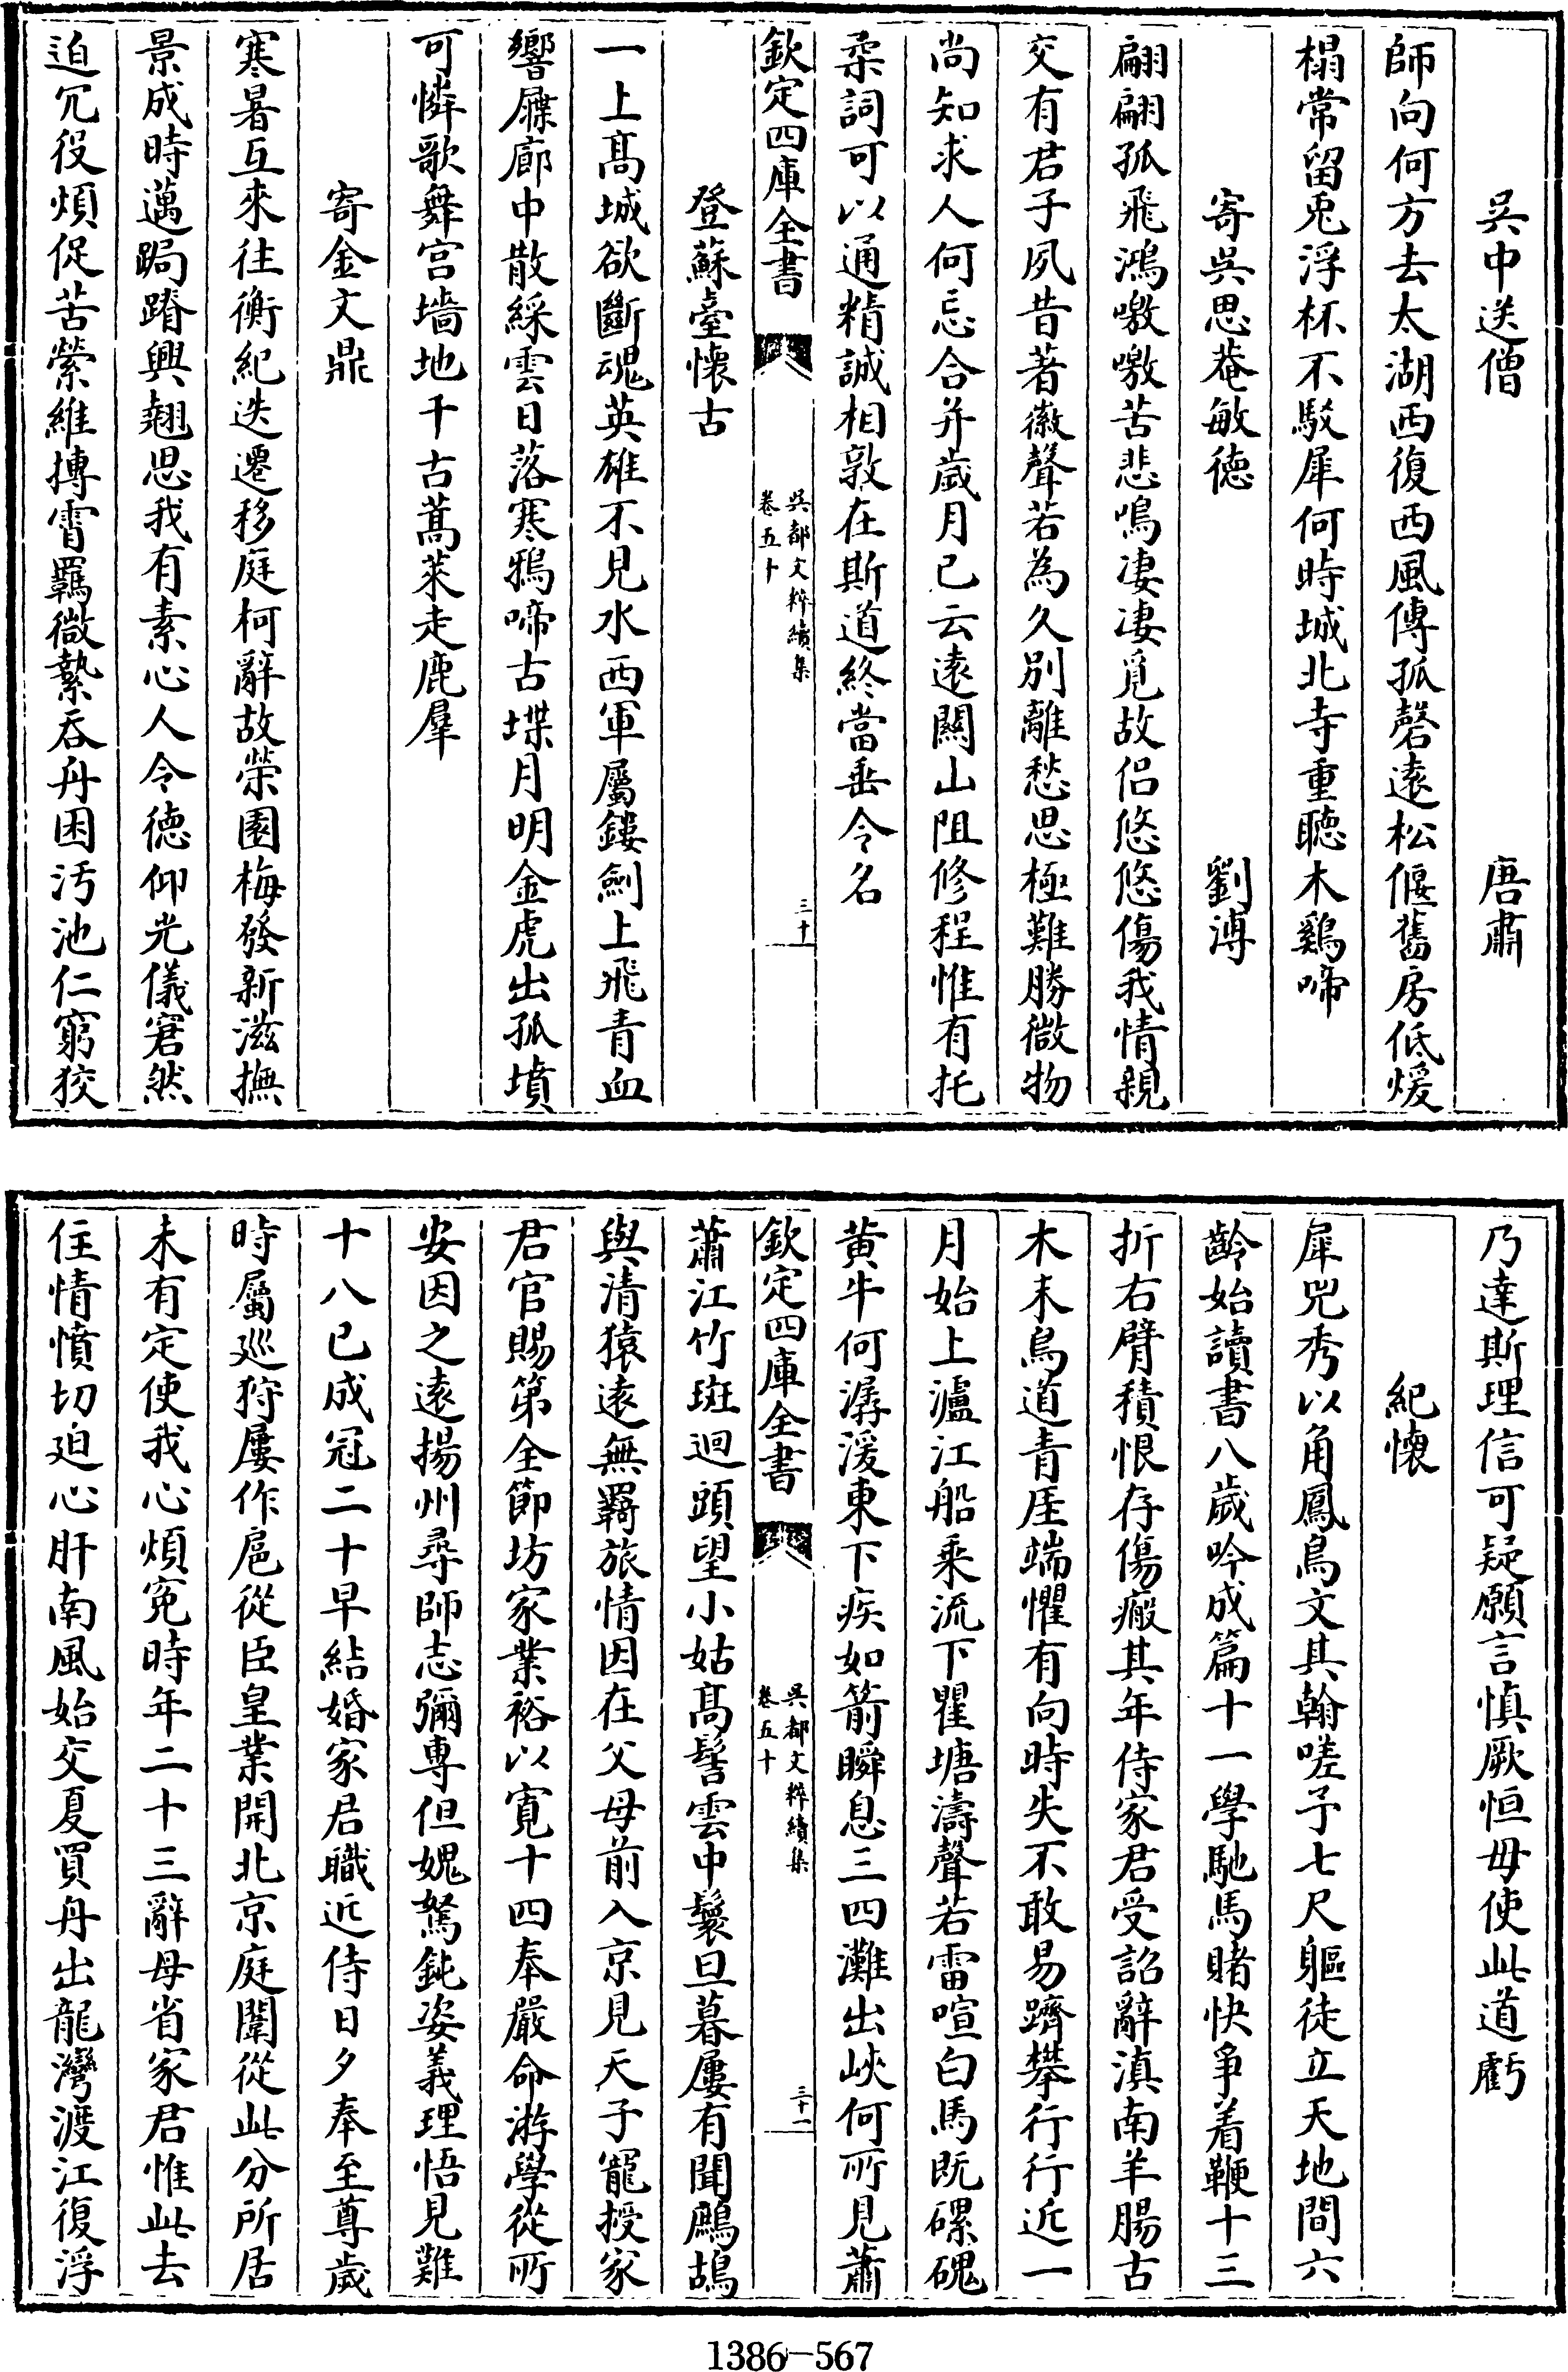 吳中送僧　唐肅
師向何方去太湖西復西風傳孤磬遠松偃舊房低煖
榻常留兎浮杯不駁犀何時城北寺重聽木鷄啼
寄吳思菴敏徳　劉溥
翩翩孤飛鴻嗷嗷苦悲鳴凄凄覓故侶悠悠傷我情親
交有君子夙昔著徽聲若為久別離愁思極難勝微物
尚知求人何忘合并歳月已云遠闗山阻修程惟有托
柔詞可以通精誠相敦在斯道終當垂令名
欽定四庫全書　吳都文粹續集　卷五十　三十
登蘇臺懷古
一上髙城欲斷魂英雄不見水西軍屬鏤劍上飛青血
響屧廊中散綵雲日落寒鴉啼古堞月明金虎出孤墳
可憐歌舞宫墻地千古蒿萊走鹿羣
寄金文鼎
寒暑互來往衡紀迭遷移庭柯辭故榮園梅發新滋撫
景成時邁跼蹐興翹思我有素心人令徳仰光儀窘然
迫冗役煩促苦縈維摶霄羈微縶吞舟困汚池仁窮狡
乃達斯理信可疑願言慎厥恒毋使此道虧
紀懷
犀兕秀以角鳳鳥文其翰嗟予七尺軀徒立天地間六
齡始讀書八歳吟成篇十一學馳馬賭快爭着鞭十三
折右臂積恨存傷瘢其年侍家君受詔辭滇南羊腸古
木末鳥道青厓端懼有向時失不敢易躋攀行行近一
月始上瀘江船乘流下瞿塘濤聲若雷喧白馬既磥磈
黄牛何潺湲東下疾如箭瞬息三四灘出峽何所見蕭
欽定四庫全書　吳都文粹續集　卷五十　三十一
蕭江竹斑迴頭望小姑髙髻雲中鬟旦暮屢有聞鷓鴣
與清猿逺無羇旅情因在父母前入京見天子寵授家
君官賜第全節坊家業裕以寛十四奉嚴命游學從所
安因之逺揚州尋師志彌専但媿駑鈍姿義理悟見難
十八已成冠二十早結婚家君職近侍日夕奉至尊歳
時屬巡狩屢作扈從臣皇業開北京庭闈從此分所居
未有定使我心煩寃時年二十三辭母省家君惟此去
住情憤切廹心肝南風始交夏買舟出龍灣渡江復浮
1386—567